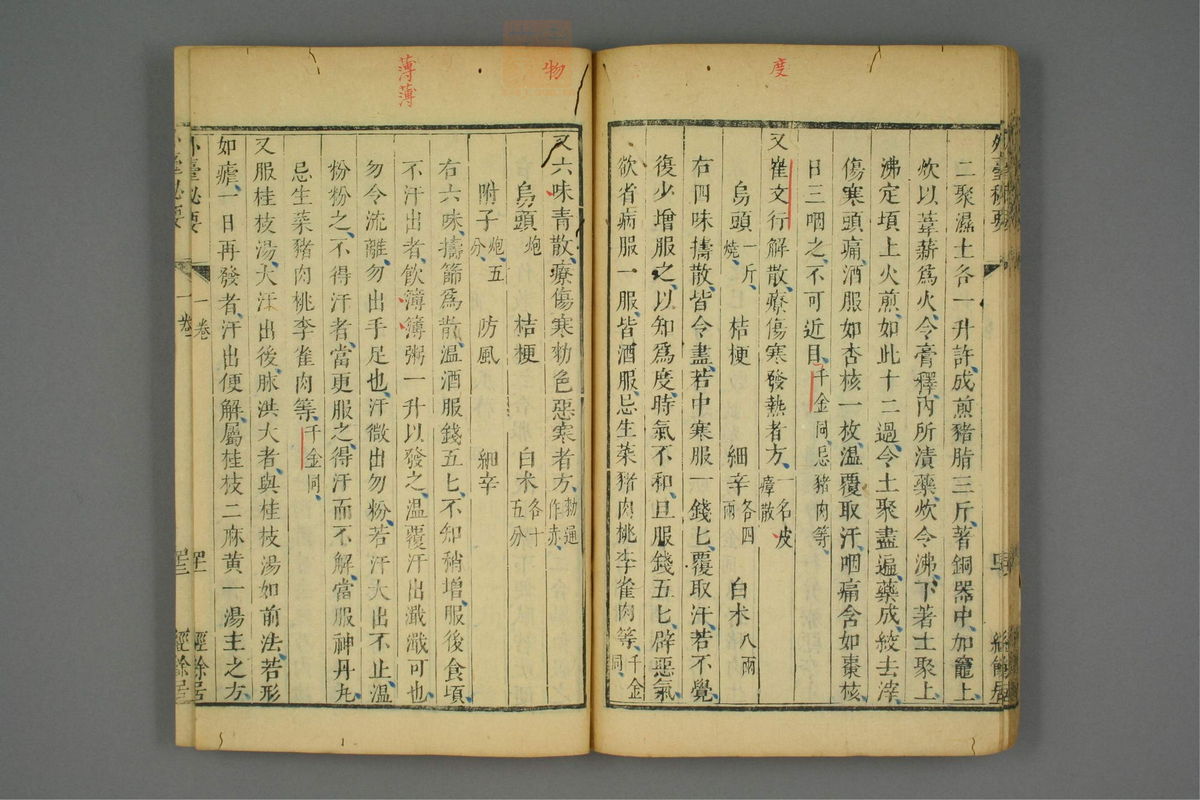 度
二聚濕土各一升許成煎豬脂三斤著銅器中加竈上
炊以葦薪爲火令膏釋內所漬藥炊令沸下著土聚上
沸定頃上火煎如此十二過令土聚盡遍藥成絞去滓
傷寒頭痛酒服如杏核一枚溫覆取汗咽痛含如棗核
日三咽之不可近目千金同忌豬肉等
又崔文行解散療傷寒發熱者方一名度瘴散
烏頭一斤燒 桔梗 細辛各四兩 白朮八兩
右四味擣散皆令盡若中寒服一錢匕覆取汗若不覺
復少增服之以知爲度時氣不和旦服錢五匕辟惡氣
欲省病服一服皆酒服忌生菜豬肉桃李雀肉等千金同
物
薄薄
又六味青散療傷寒勑色惡寒者方勑通作赤
烏頭炮 桔梗 白朮各十五分
附子炮五分 防風 細辛
右六味擣篩爲散溫酒服錢五匕不知稍增服後食頃
不汗出者飲簿簿粥一升以發之溫覆汗出濈濈可也
勿令流離勿出手足也汗微出勿粉若汗大出不止溫
粉粉之不得汗者當更服之得汗而不解當服神丹丸
忌生菜豬肉桃李雀肉等千金同
又服桂枝湯大汗出後脉洪大者與桂枝湯如前法若形
如瘧一日再發者汗出便解屬桂枝二麻黃一湯主之方
外臺秘要
一卷
經餘居